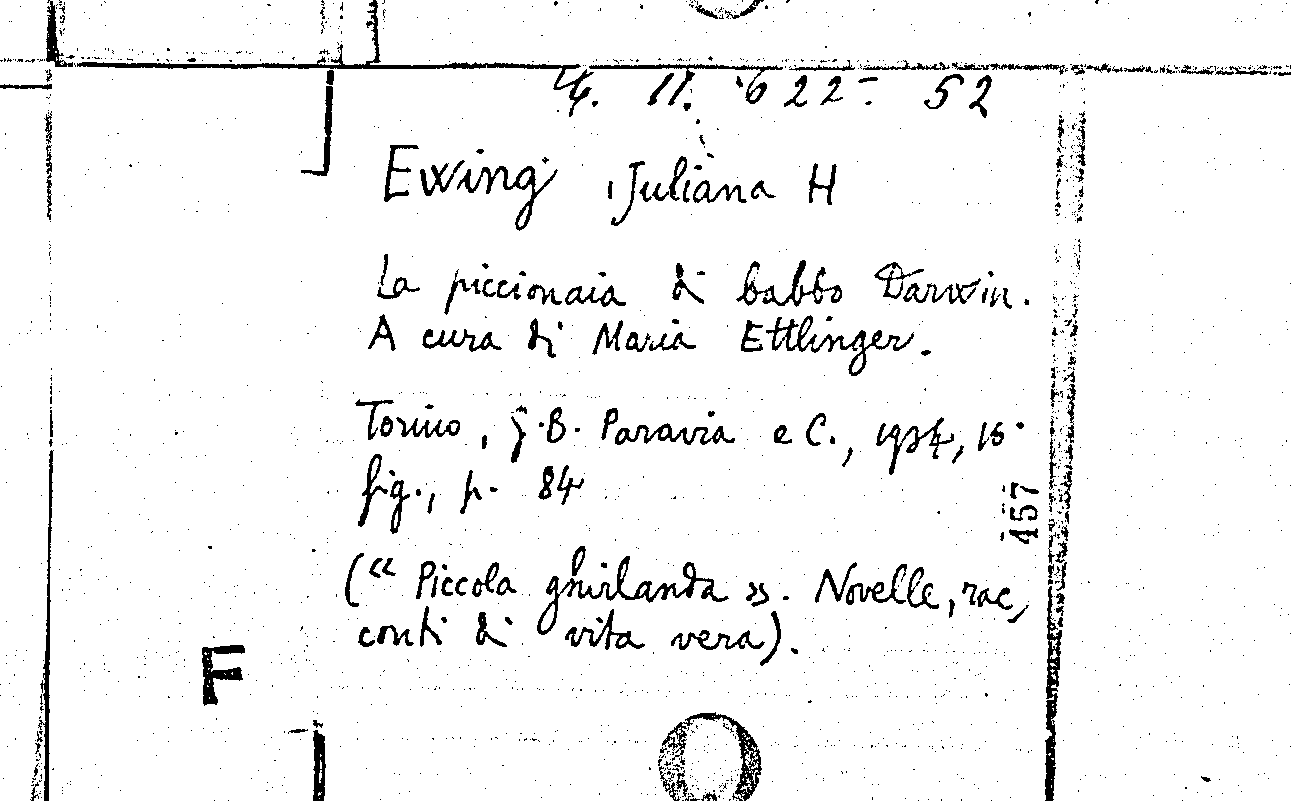 4. 11. 622 - 52
Ewing , Juliana H
La piccionaia di babbo Darwin.
A cura di Maria Ettlinger.
Torino, G. B. Paravia e C., 1934, 16°
fig., p. 84
(« Piccola ghirlanda ». Novelle, rac,
conti di vita vera).
457
F